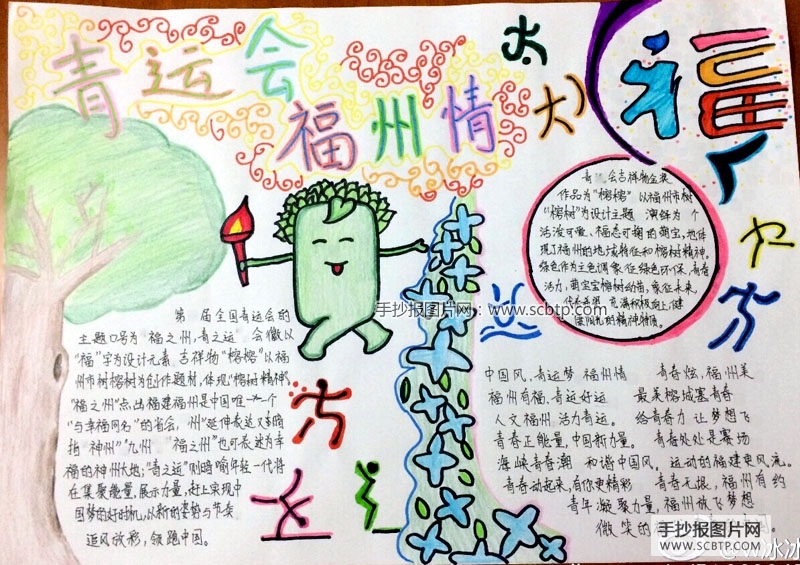 青运会
福州情
福
青 会吉祥物金奖
作品为“榕榕”以福州市树
“榕树”为设计主题 演绎为 个
活泼可爱、福态可掬的萌宝,她体
现了福州的地域特征和榕树精神。
绿色作为主色调象征绿色环保、青春
活力,萌宝宝榕树幼苗,象征未来
代表希望 充满积极向上,健
康阳光的精神特质。
第 届全国青运会的
主题口号为 福之州,青之运 会徽以
“福”字为设计元素 吉祥物“榕榕”以福
州市树榕树为创作题材,体现“榕树精神”
“福之州”点出福建福州是中国唯一一个
“与幸福同名”的省会,州“延伸表达又可暗
指“神州”“九州 “福之州”也可表述为幸
福的神州大地;“青之运”则暗喻年轻一代将
在集聚能量,展示力量,赶上实现中
国梦的好时机,以新的姿势与节奏
追风放彩,领跑中国。
中国风,青运梦 福州情 青春炫,福州美
福州有福,青运好运 最美榕城塞青春
人文福州 活力青运。 给青春力 让梦想飞
青春正能量,中国新力量。 青春处处是赛场
海峡青春潮 和谐中国风, 运动的福建更风流。
青春动起来,有你更精彩 青春无限,福州有约
青年凝聚力量,福州放飞梦想
微笑的
手抄报图片网:www.scbtp.com
手抄报图片网
WWW.SCBTP.COM